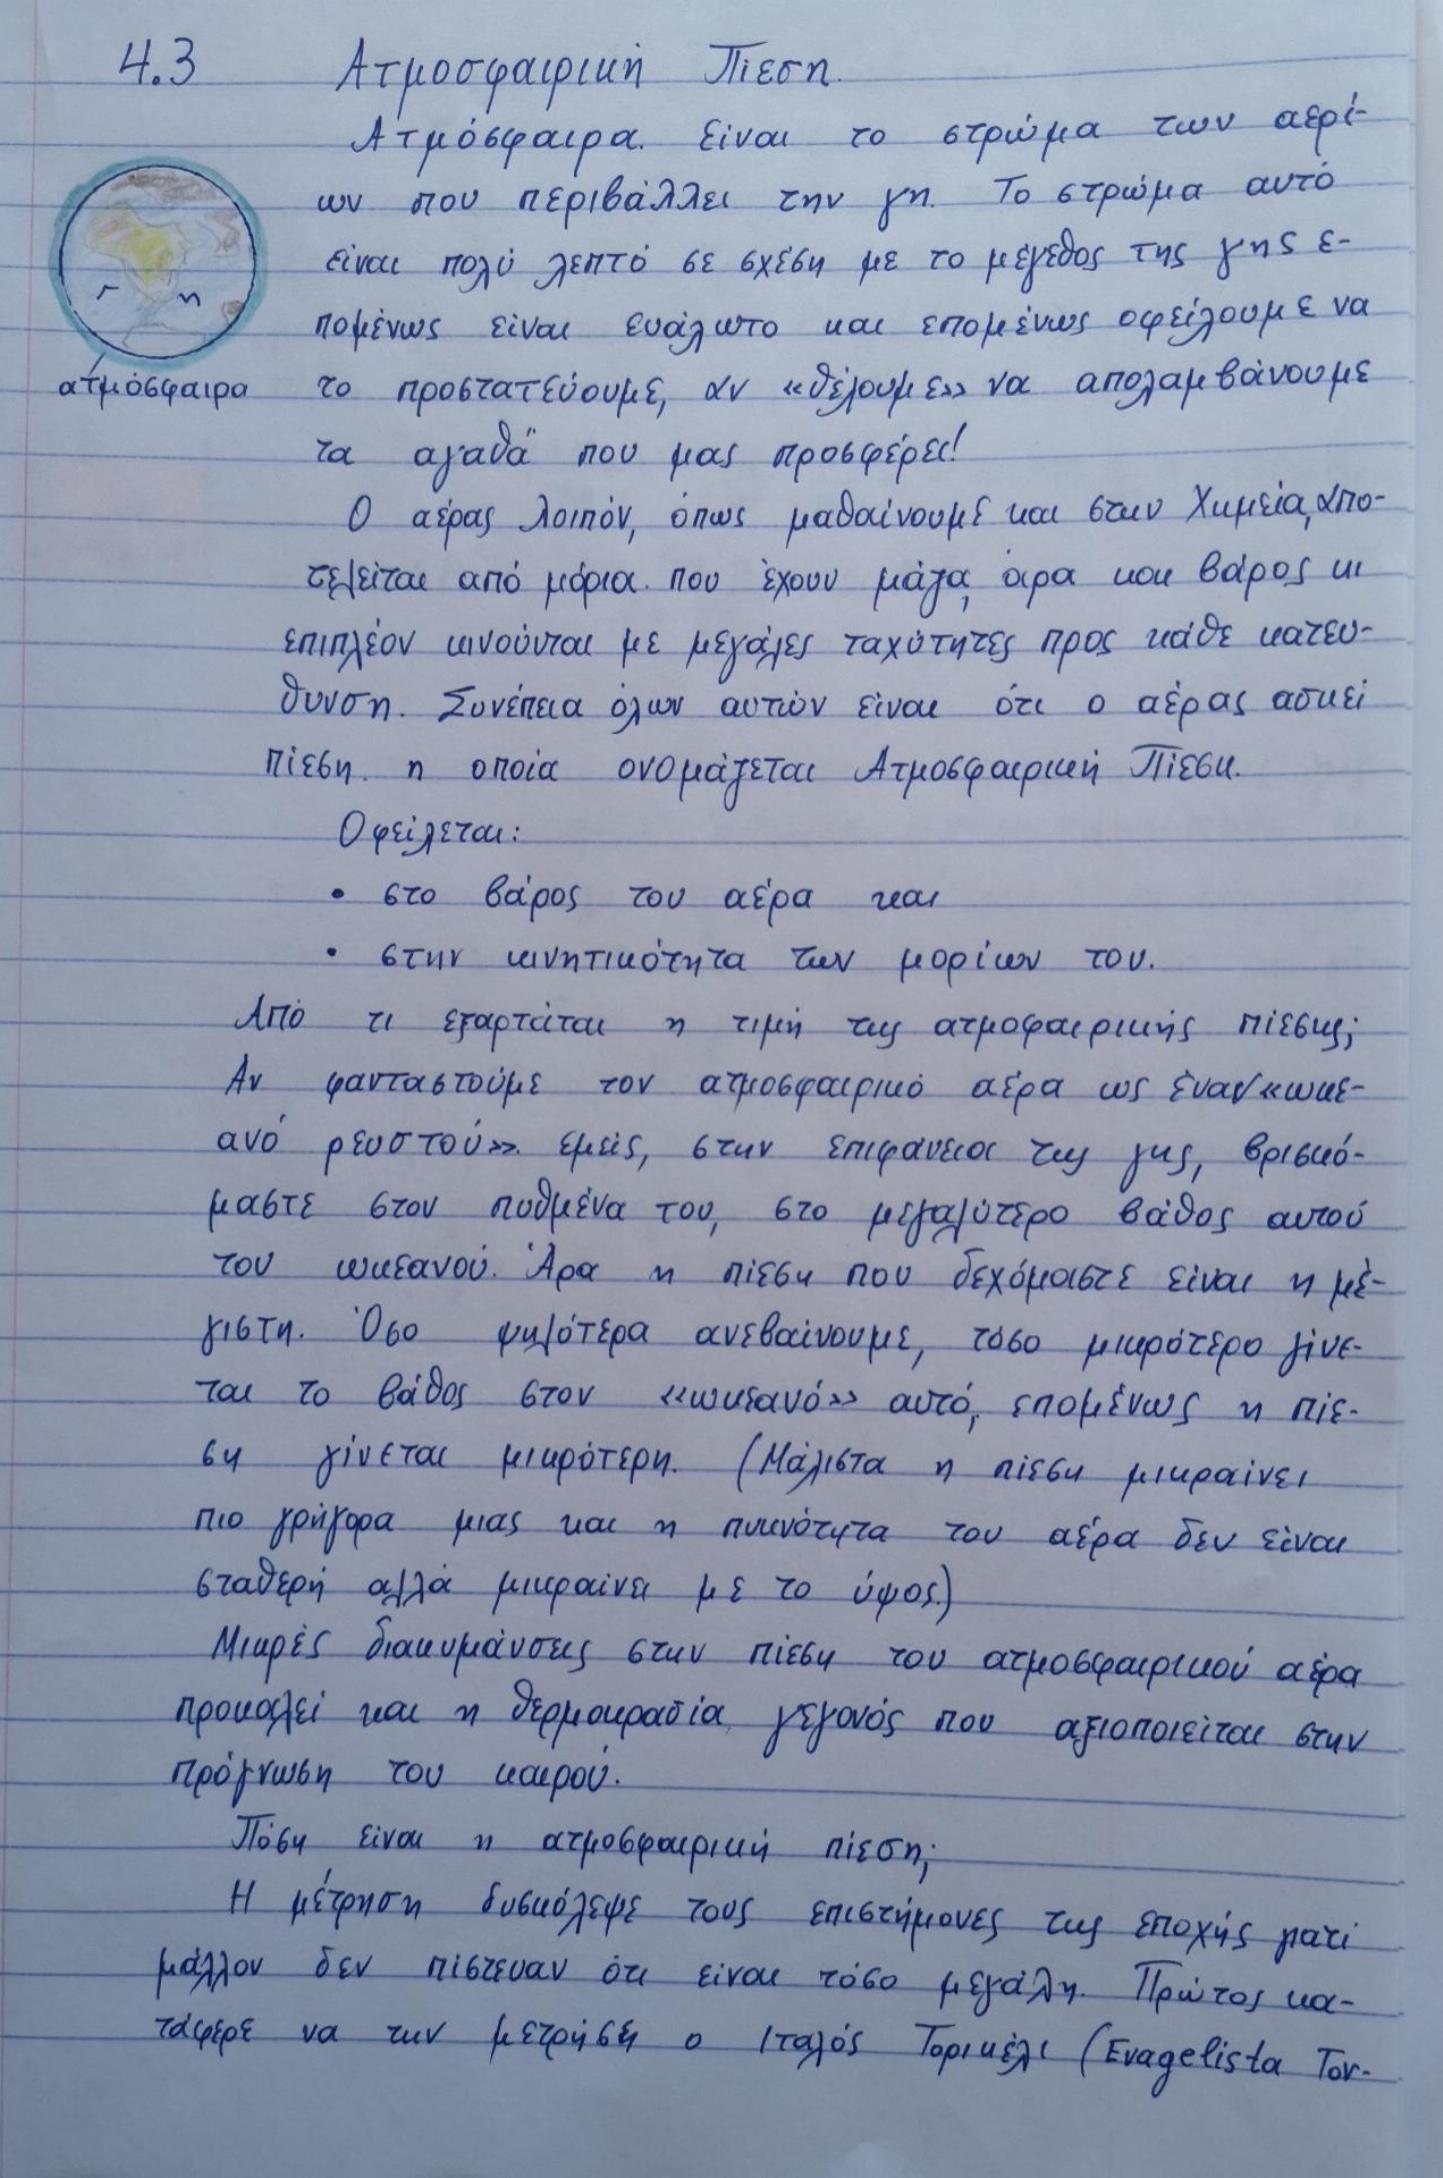 4.3 Ατμοσφαιρική Πίεση.
Ατμόσφαιρα. Είναι το στρώμα των αερί-
ων που περιβάλλει την γη. Το στρώμα αυτό
είναι πολύ λεπτό σε σχέση με το μέγεθος της γης ε-
Γ η
πομένως είναι ευάλωτο και επομένως οφείλουμε να
ατμόσφαιρα
το προστατεύουμε, αν «θέλουμε» να απολαμβάνουμε
τα αγαθά που μας προσφέρει!
Ο αέρας λοιπόν, όπως μαθαίνουμε και στην Χημεία, απο-
τελείται από μόρια που έχουν μάζα, άρα και βάρος κι
επιπλέον κινούνται με μεγάλες ταχύτητες προς κάθε κατεύ-
θυνση. Συνέπεια όλων αυτών είναι ότι ο αέρας ασκεί
πίεση η οποία ονομάζεται Ατμοσφαιρική Πίεση.
Οφείλεται:
• στο βάρος του αέρα και
• στην κινητικότητα των μορίων του.
Από τι εξαρτάται η τιμή της ατμοφαιρικής πίεσης;
Αν φανταστούμε τον ατμοσφαιρικό αέρα ως έναν «ωκε-
ανό ρευστού» εμείς, στην επιφάνεια της γης, βρισκό-
μαστε στον πυθμένα του, στο μεγαλύτερο βάθος αυτού
του ωκεανού. Άρα η πίεση που δεχόμαστε είναι η μέ-
γιστη. Όσο ψηλότερα ανεβαίνουμε, τόσο μικρότερο γίνε-
ται το βάθος στον «ωκεανό» αυτό, επομένως η πίε-
ση γίνεται μικρότερη. (Μάλιστα η πίεση μικραίνει
πιο γρήγορα μιας και η πυκνότητα του αέρα δεν είναι
σταθερή αλλά μικραίνει με το ύψος.)
Μικρές διακυμάνσεις στην πίεση του ατμοσφαιρικού αέρα
προκαλεί και η θερμοκρασία γεγονός που αξιοποιείται στην
πρόγνωση του καιρού.
Πόση είναι η ατμοσφαιρική πίεση;
Η μέτρηση δυσκόλεψε τους επιστήμονες της εποχής γιατί
μάλλον δεν πίστευαν ότι είναι τόσο μεγάλη. Πρώτος κα-
τάφερε να την μετρήσει ο Ιταλός Τορικέλι (Evagelista Tor-